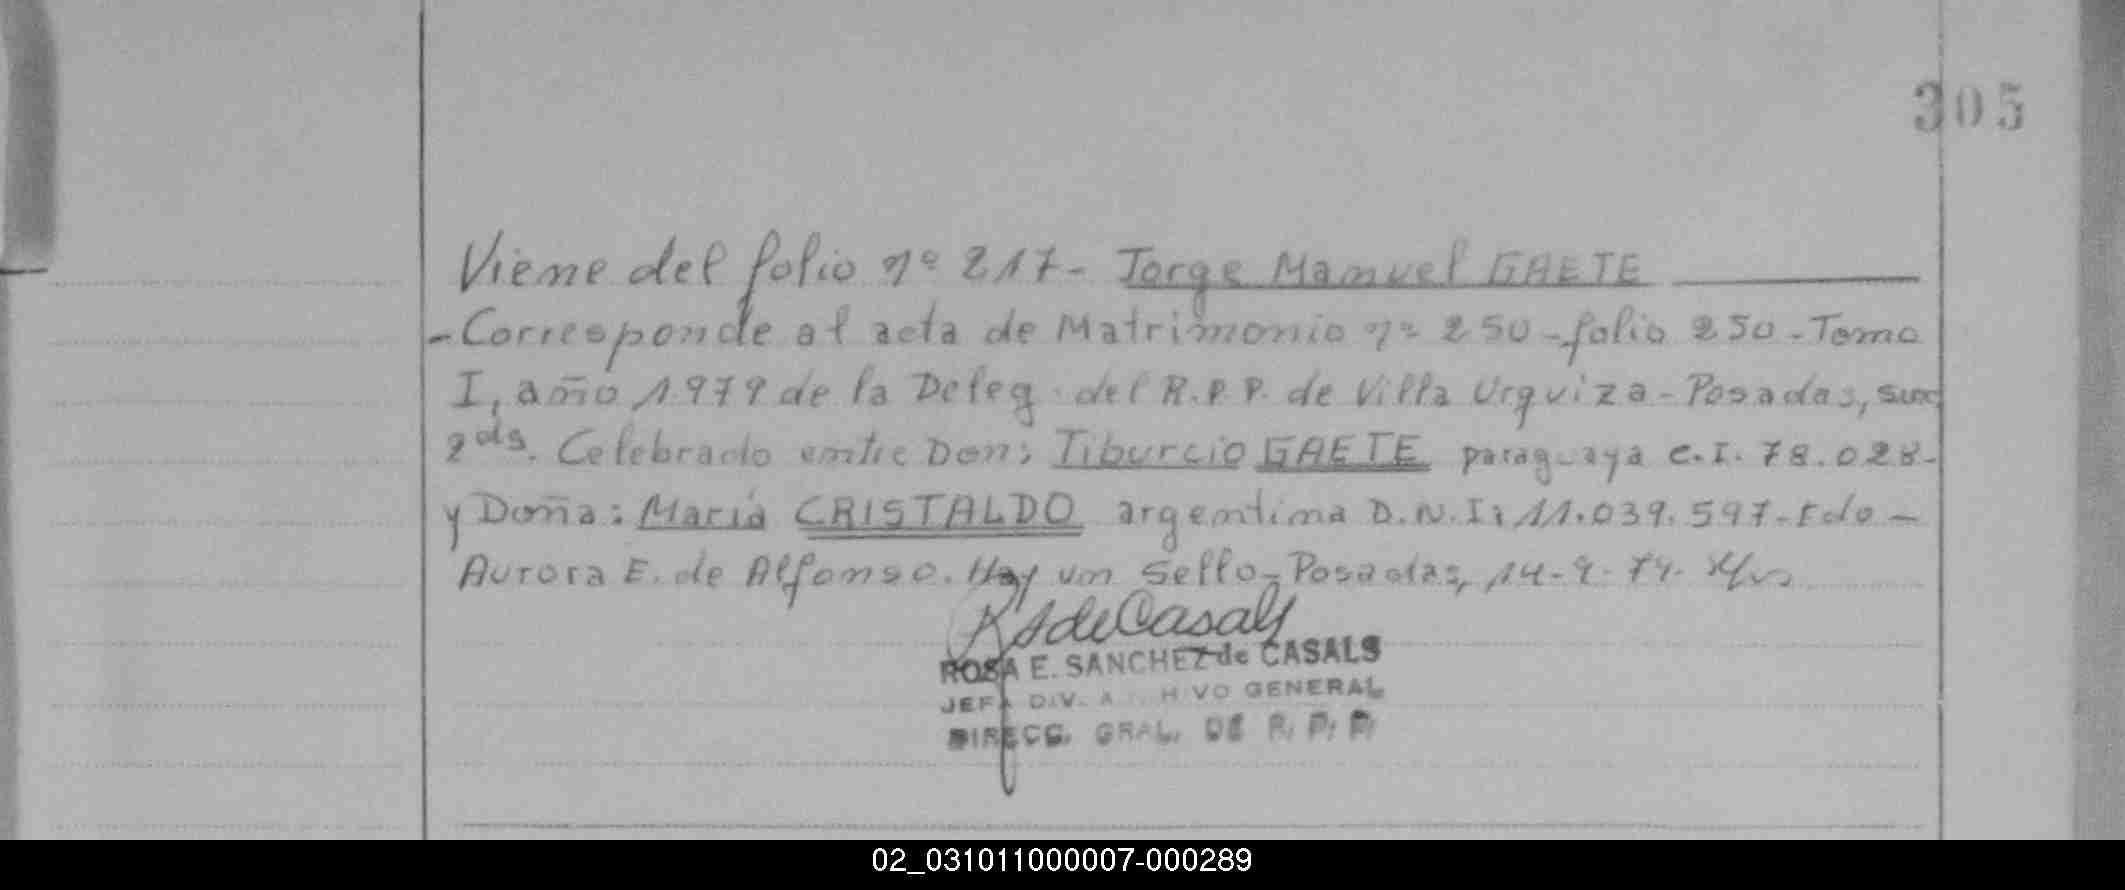 305
Viene del folio nº 217- Jorge Manuel GAETE
- Corresponde al acta de Matrimonio nº 250 - folio 250 - Tomo
I, año 1.979 de la Deleg. del R.P.P. de Villa Urquiza - Posadas,
2ds. Celebrado entre Don: Tiburcio GAETE paraguaya C.I. 78.028-
y Doña: María CRISTALDO argentina D.N.I: 11.039.597- Fdo -
Aurora E. de Alfonso. Hay un Sello - Posadas, 14-9-79.
RSdeCasals
ROSA E. SANCHEZ de CASALS
JEFA DIV. ARCHIVO GENERAL
DIRECC. GRAL. DE R. P. P.
02_031011000007-000289